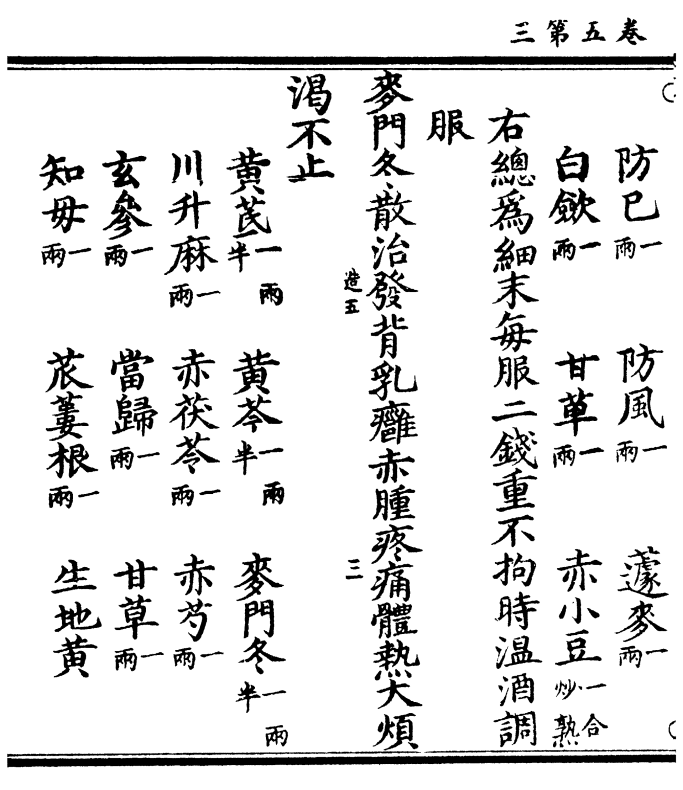 卷五第三
防巳一兩 防風一兩 蘧麥一兩
白歛一兩 甘草一兩 赤小豆一合炒熟
右總爲細末每服二錢重不拘時温酒調
服
麥門冬散治發背乳癰赤腫疼痛體熱大煩
造五 三
渴不止
黄芪一兩半 黄芩一兩半 麥門冬一兩半
川升麻一兩 赤茯苓一兩 赤芍一兩
玄參一兩 當歸一兩 甘草一兩
知毋一兩 苽蔞根一兩 生地黄